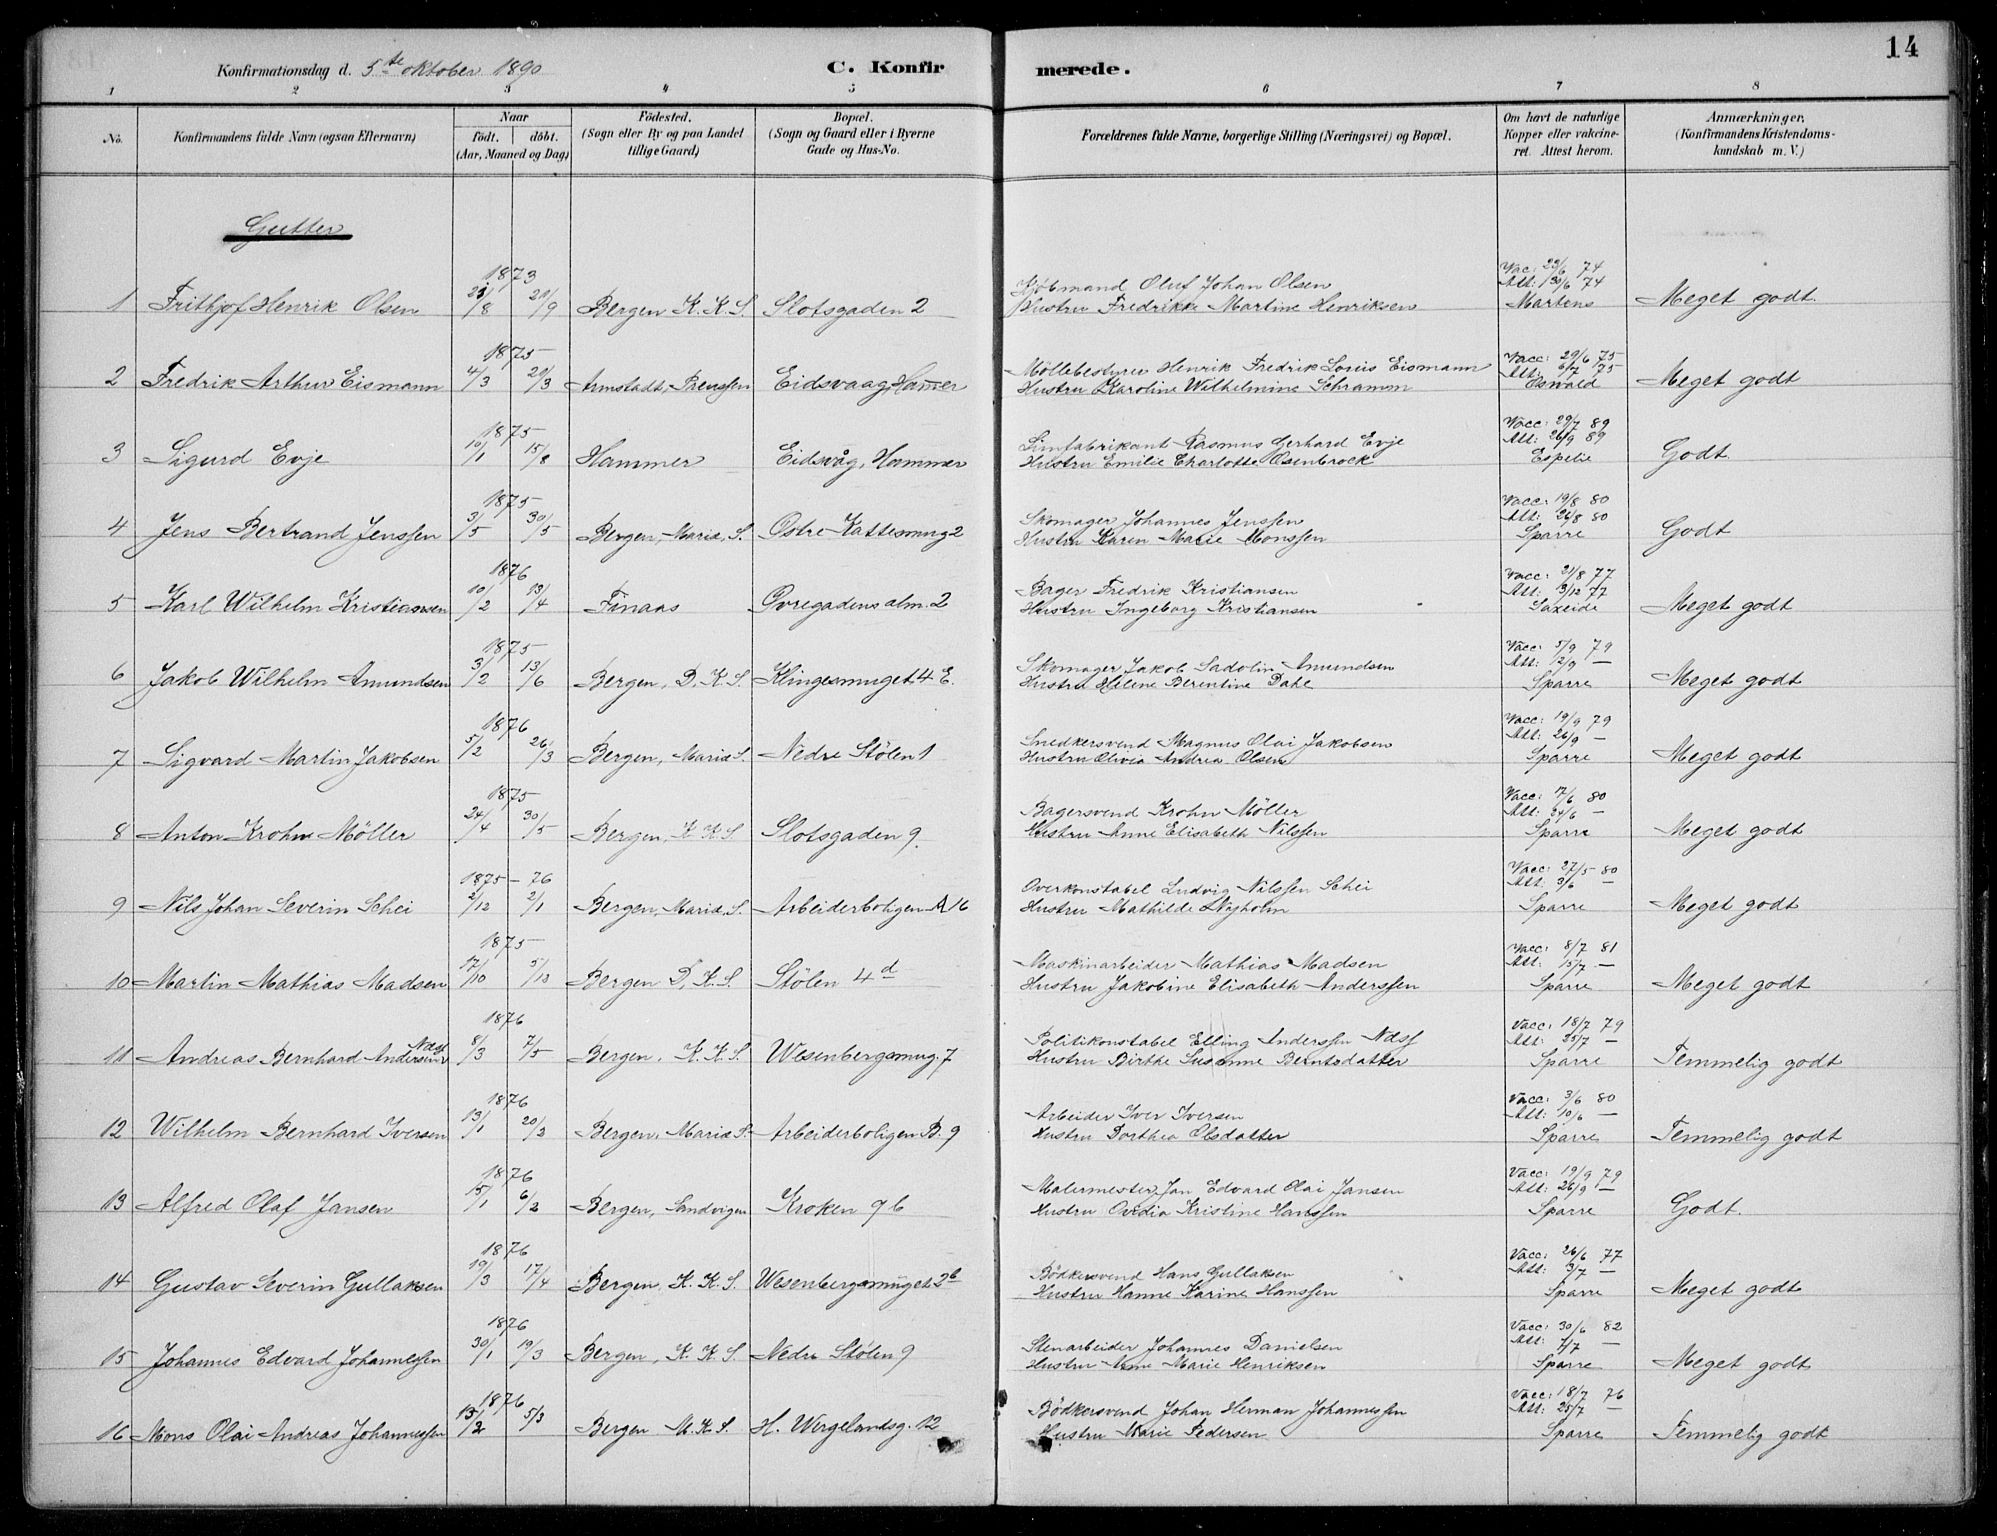 14
Konfirmationsdag d. 5te oktober 1890
C. Konfirmerede.
1 2 3 4 5 6 7 8
No.
Konfirmandens fulde Navn (ogsaa Efternavn)
Naar
født. døbt.
(Aar, Maaned og Dag)
Fødested.
(Sogn eller By og paa Landet
tillige Gaard)
Bopæl.
(Sogn og Gaard eller i Byerne
Gade og Hus-No.
Forældrenes fulde Navne, borgerlige Stilling (Næringsvei) og Bopæl.
Om havt de naturlige
Kopper eller vakcine-
ret. Attest herom.
Anmærkninger.
(Konfirmandens Kristendoms-
kundskab m. V.)
Gutter
1873
1 Frithjof Henrik Olsen 23/8 21/9 Bergen K. K. S. Slotsgaden 2
Kjøbmand Oluf Johan Olsen
Hustru Fredrikke Martine Henriksen
Vac: 23/6 74
Att: 30/6 74
Martens
Meget godt.
1875
2 Fredrik Arthur Eismann 4/3 29/3 Armstadt, Preussen Eidsvaag, Hamer
Möllebestyrer Henrik Fredrik Louis Eismann
Hustru Karoline Wilhelmine Schramm
Vacc: 29/6 75
Att: 6/7 75
Oswald
Meget godt
1875
3 Sigurd Evje 10/1 15/8 Hammer Eidsvåg, Hammer
Limfabrikant Rasmus Gerhard Evje
Hustru Emilie Charlotte Osenbrock
Vacc: 29/7 89
Att: 26/9 89
Espelie
Godt.
1875
4 Jens Bertrand Jenssen 3/5 30/5 Bergen, Mariæ, S. Ostre Kattesmug 2
Skomager Johannes Jenssen
Hustru Karen Marie Monssen
Vacc: 19/8 80
Att: 26/8 80
Sparre
Godt
1876
5 Karl Wilhelm Kristiansen 10/2 13/4 Finaas Ovregadens alm. 2
Bager Fredrik Kristiansen
Hustru Ingeborg Kristiansen
Vacc: 21/8 77
Att: 13/12 77
Saxeide
Meget godt
1875
6 Jakob Wilhelm Amundsen 3/2 13/6 Bergen, D. K. S. Klingesmuget 4 E.
Skomager Jakob Sadolin Amundsen
Hustru Helene Berentine Dahl
Vacc: 5/9 79
Att: 12/9 —
Sparre
Meget godt
1876
7 Sigvard Martin Jakobsen 5/2 26/3 Bergen, Mariæ S. Nedre Stölen 1
Snedkersvend Magnus Olai Jakobsen
Hustru Olivia Andrea Olsen
Vacc: 19/9 79
Att: 26/9 —
Sparre
Meget godt
1875
8 Anton Krohn Möller 24/4 30/5 Bergen, K K S Slotsgaden 9.
Bagersvend Krohn Möller
Hustru Anne Elisabeth Nilssen
Vacc: 17/6 80
Att: 24/6 —
Sparre
Meget godt
1875 – 76
9 Nils Johan Severin Schei 2/12 2/1 Bergen, Mariæ, S. Arbeiderboligen A 16
Overkonstabel Ludvig Nilssen Schei
Hustru Mathilde Nyholm
Vacc: 27/5 80
Att: 3/6 —
Sparre
Meget godt
1875
10 Martin Mathias Madsen 17/10 5/12 Bergen D. K. S. Stölen 4 d
Maskinarbeider Mathias Madsen
Hustru Jakobine Elisabeth Anderssen
Vacc: 8/7 81
Att: 15/7 —
Sparre
Meget godt
1876
11 Andreas Bernhard Andersen Ndsf 8/3 7/5 Bergen. K. K. S Wesenbergsmug. 7
Politikonstabel Elling Anderssen Ndsf
Hustru Birthe Susanne Berntsdatter
Vacc: 18/7 79
Att: 25/7 —
Sparre
Temmelig godt
1876
12 Wilhelm Bernhard Iversen 13/1 20/2 Bergen, Mariæ S. Arbeiderboligen B. 9
Arbeider Iver Iversen
Hustru Dorthea Olsdatter
Vacc: 3/6 80
Att: 10/6 —
Sparre
Temmelig godt
1876
13 Alfred Olaf Jansen 15/1 6/2 Bergen, Sandvigen Kroken 9 b
Malermester Jan Edvard Olai Jansen
Hustru Ovidia Kristine Hanssen
Vacc: 19/9 79
Att: 26/9 —
Sparre
Godt.
1876
14 Gustav Severin Gullaksen 19/3 17/4 Bergen, K. K. S. Wesenbergsmuget 2 b
Bödkersvend Hans Gullaksen
Hustru Hanne Karine Hanssen
Vacc: 26/6 77
Att: 3/7 —
Sparre
Meget godt
1876
15 Johannes Edvard Johannessen 30/1 19/3 Bergen, K. K. S. Nedre Stölen 9
Stenarbeider Johannes Danielsen
Hustru Ane Marie Henriksen
Vacc: 30/6 82
Att: 7/7
Sparre
Meget godt
1876
16 Mons Olai Andreas Johannessen 13/2 5/3 Bergen M. K. S. H. Wergelandsg. 12
Bödkersvend Johan Herman Johannessen
Hustru Marie Pedersen
Vacc: 18/7 76
Att: 25/7 —
Sparre
Temmelig godt